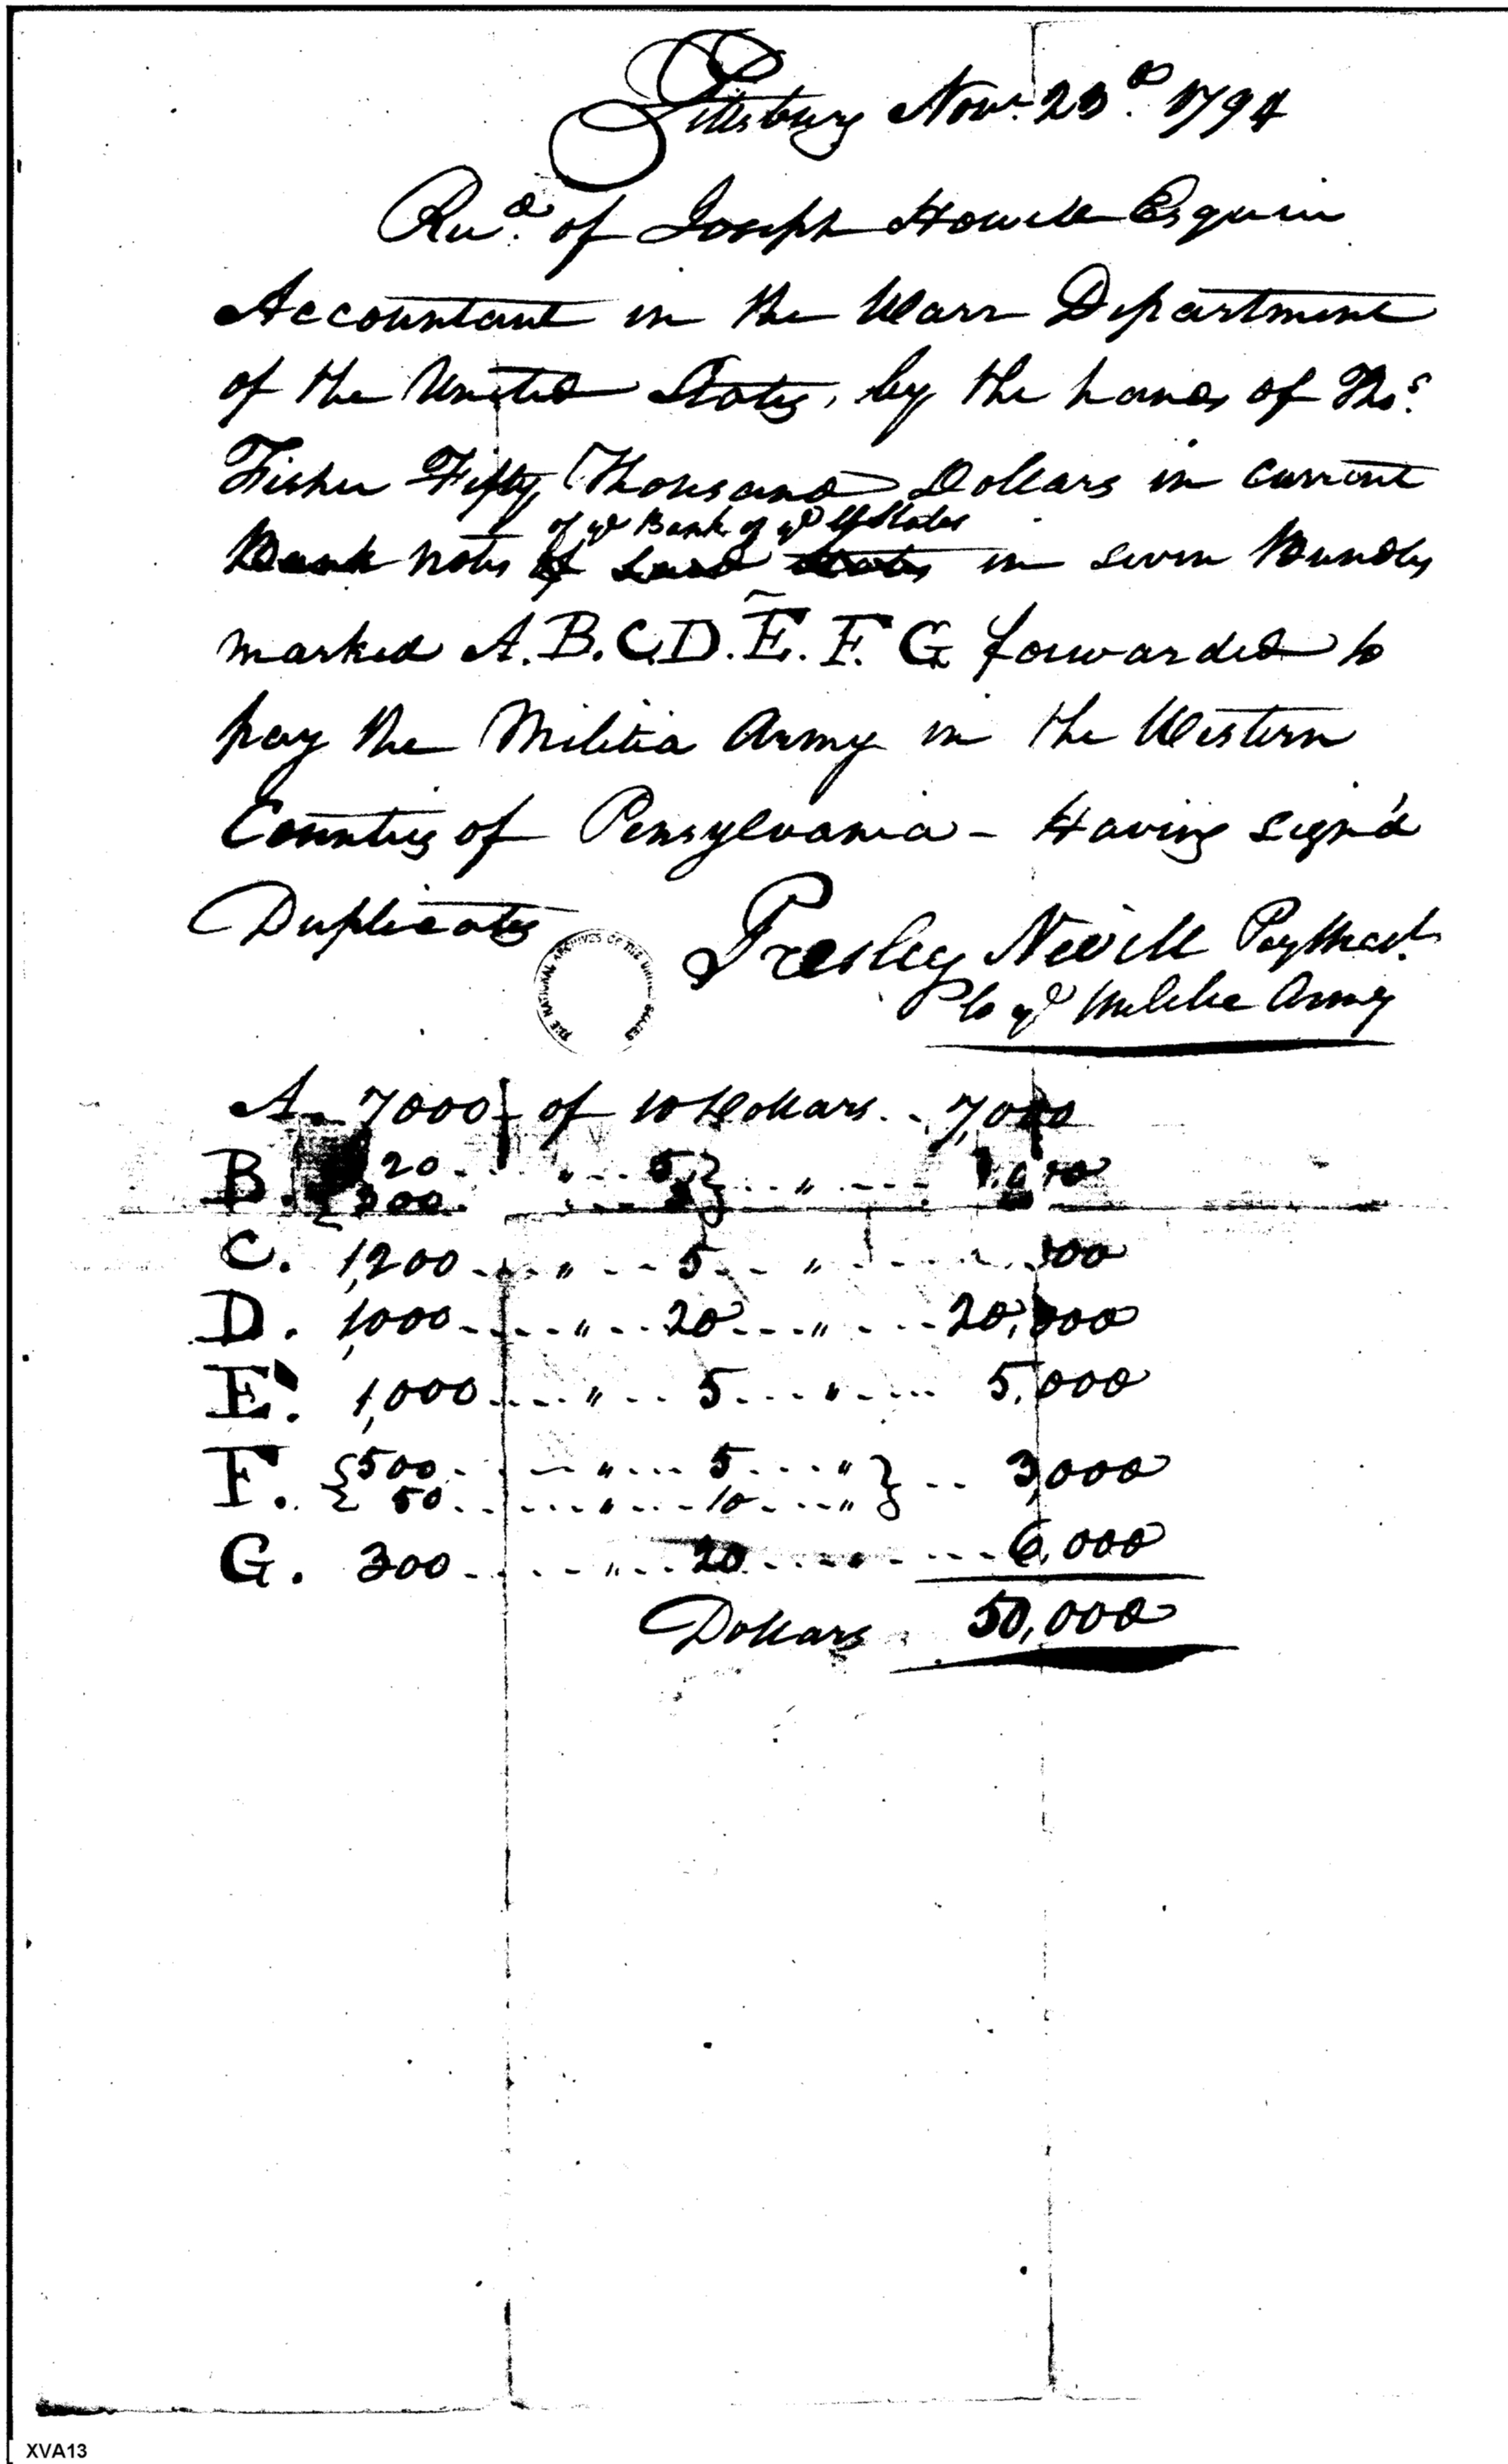 Pittsburg Novr. 23d. 1794
Recd. of Joseph Howell Esquire
Accountant in the Warr Department
of the United States, by the hands of Thos.
Fisher Fifty Thousand Dollars in current
of ye Bank of ye U States
Bank notes of said States in seven Bundles
marked A. B. C. D. E. F. G forwarded to
pay the Militia Army in the Western
Counties of Pensylvania - Having sign'd
Duplicates
Presley Nevill PayMast.
to ye Militia Army
THE NATIONAL ARCHIVES OF THE UNITED STATES
A. 7000 of 10 Dollars .. 7,000
B. { 20 .. " .. 5 } .. " ..
200 .. "
C. 1,200 .. " .. 5 .. " .. 000
D. 1,000 .. " .. 20 .. " .. 20,000
E. 1,000 .. " .. 5 .. " .. 5,000
F. { 500 .. " .. 5 .. " } .. 3,000
{ 50 .. " .. 10 .. "
G. 300 .. " .. 20 .. " .. 6,000
Dollars 50,000
XVA13